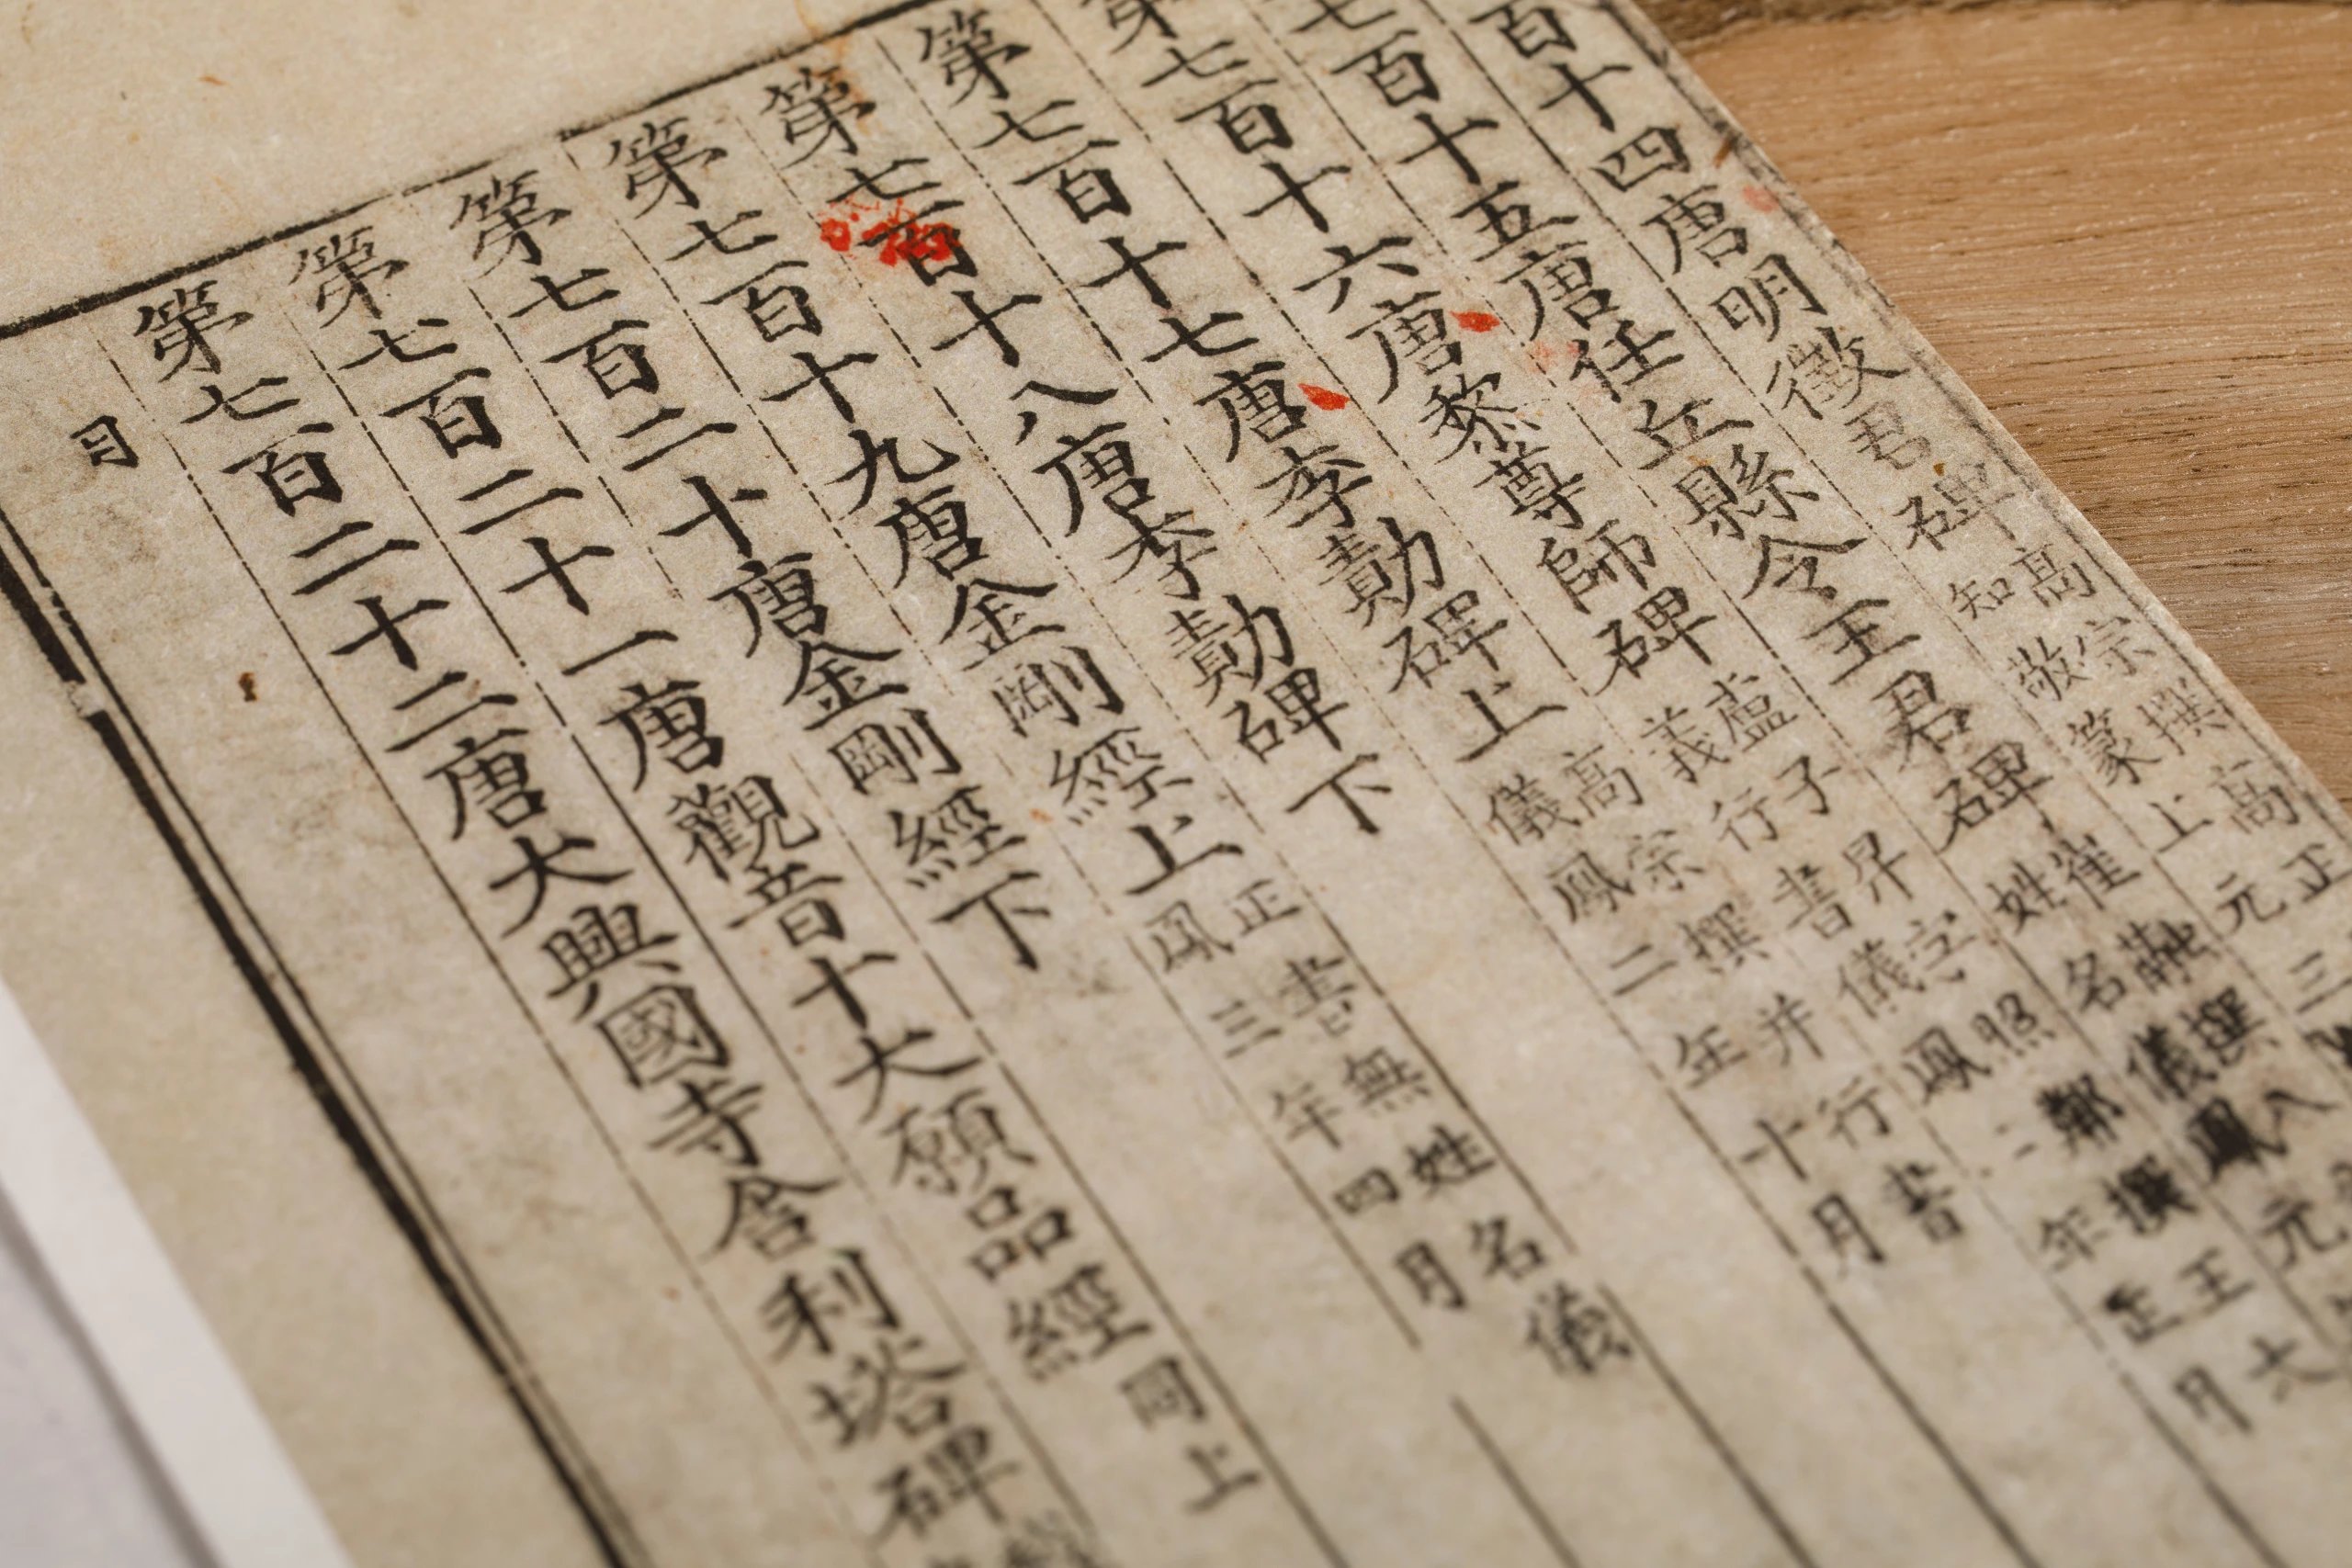 百十四唐明徵君碑
高宗撰高正
知敬篆上元三
七百十五唐任丘縣令王君碑
崔融撰八
姓名儀鳳元
第七百十六唐黎尊師碑
盧子昇字照鄰撰王大
義行書儀鳳二年正月
第七百十七唐李勣碑上
高宗撰并行書
儀鳳二年十月
第七百十八唐李勣碑下
第七百十九唐金剛經上
正書無姓名儀
鳳三年四月
第七百二十唐金剛經下
第七百二十一唐觀音十大願品經同上
第七百二十二唐大興國寺舍利塔碑
目